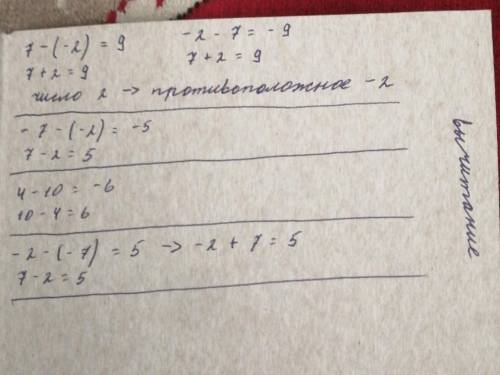 7 - (-2) = 9
7 + 2 = 9
-2 - 7 = -9
7 + 2 = 9
число 2 → противоположное -2
-7 - (-2) = -5
7 - 2 = 5
4 - 10 = -6
10 - 4 = 6
-2 - (-7) = 5 → -2 + 7 = 5
7 - 2 = 5
вычитание